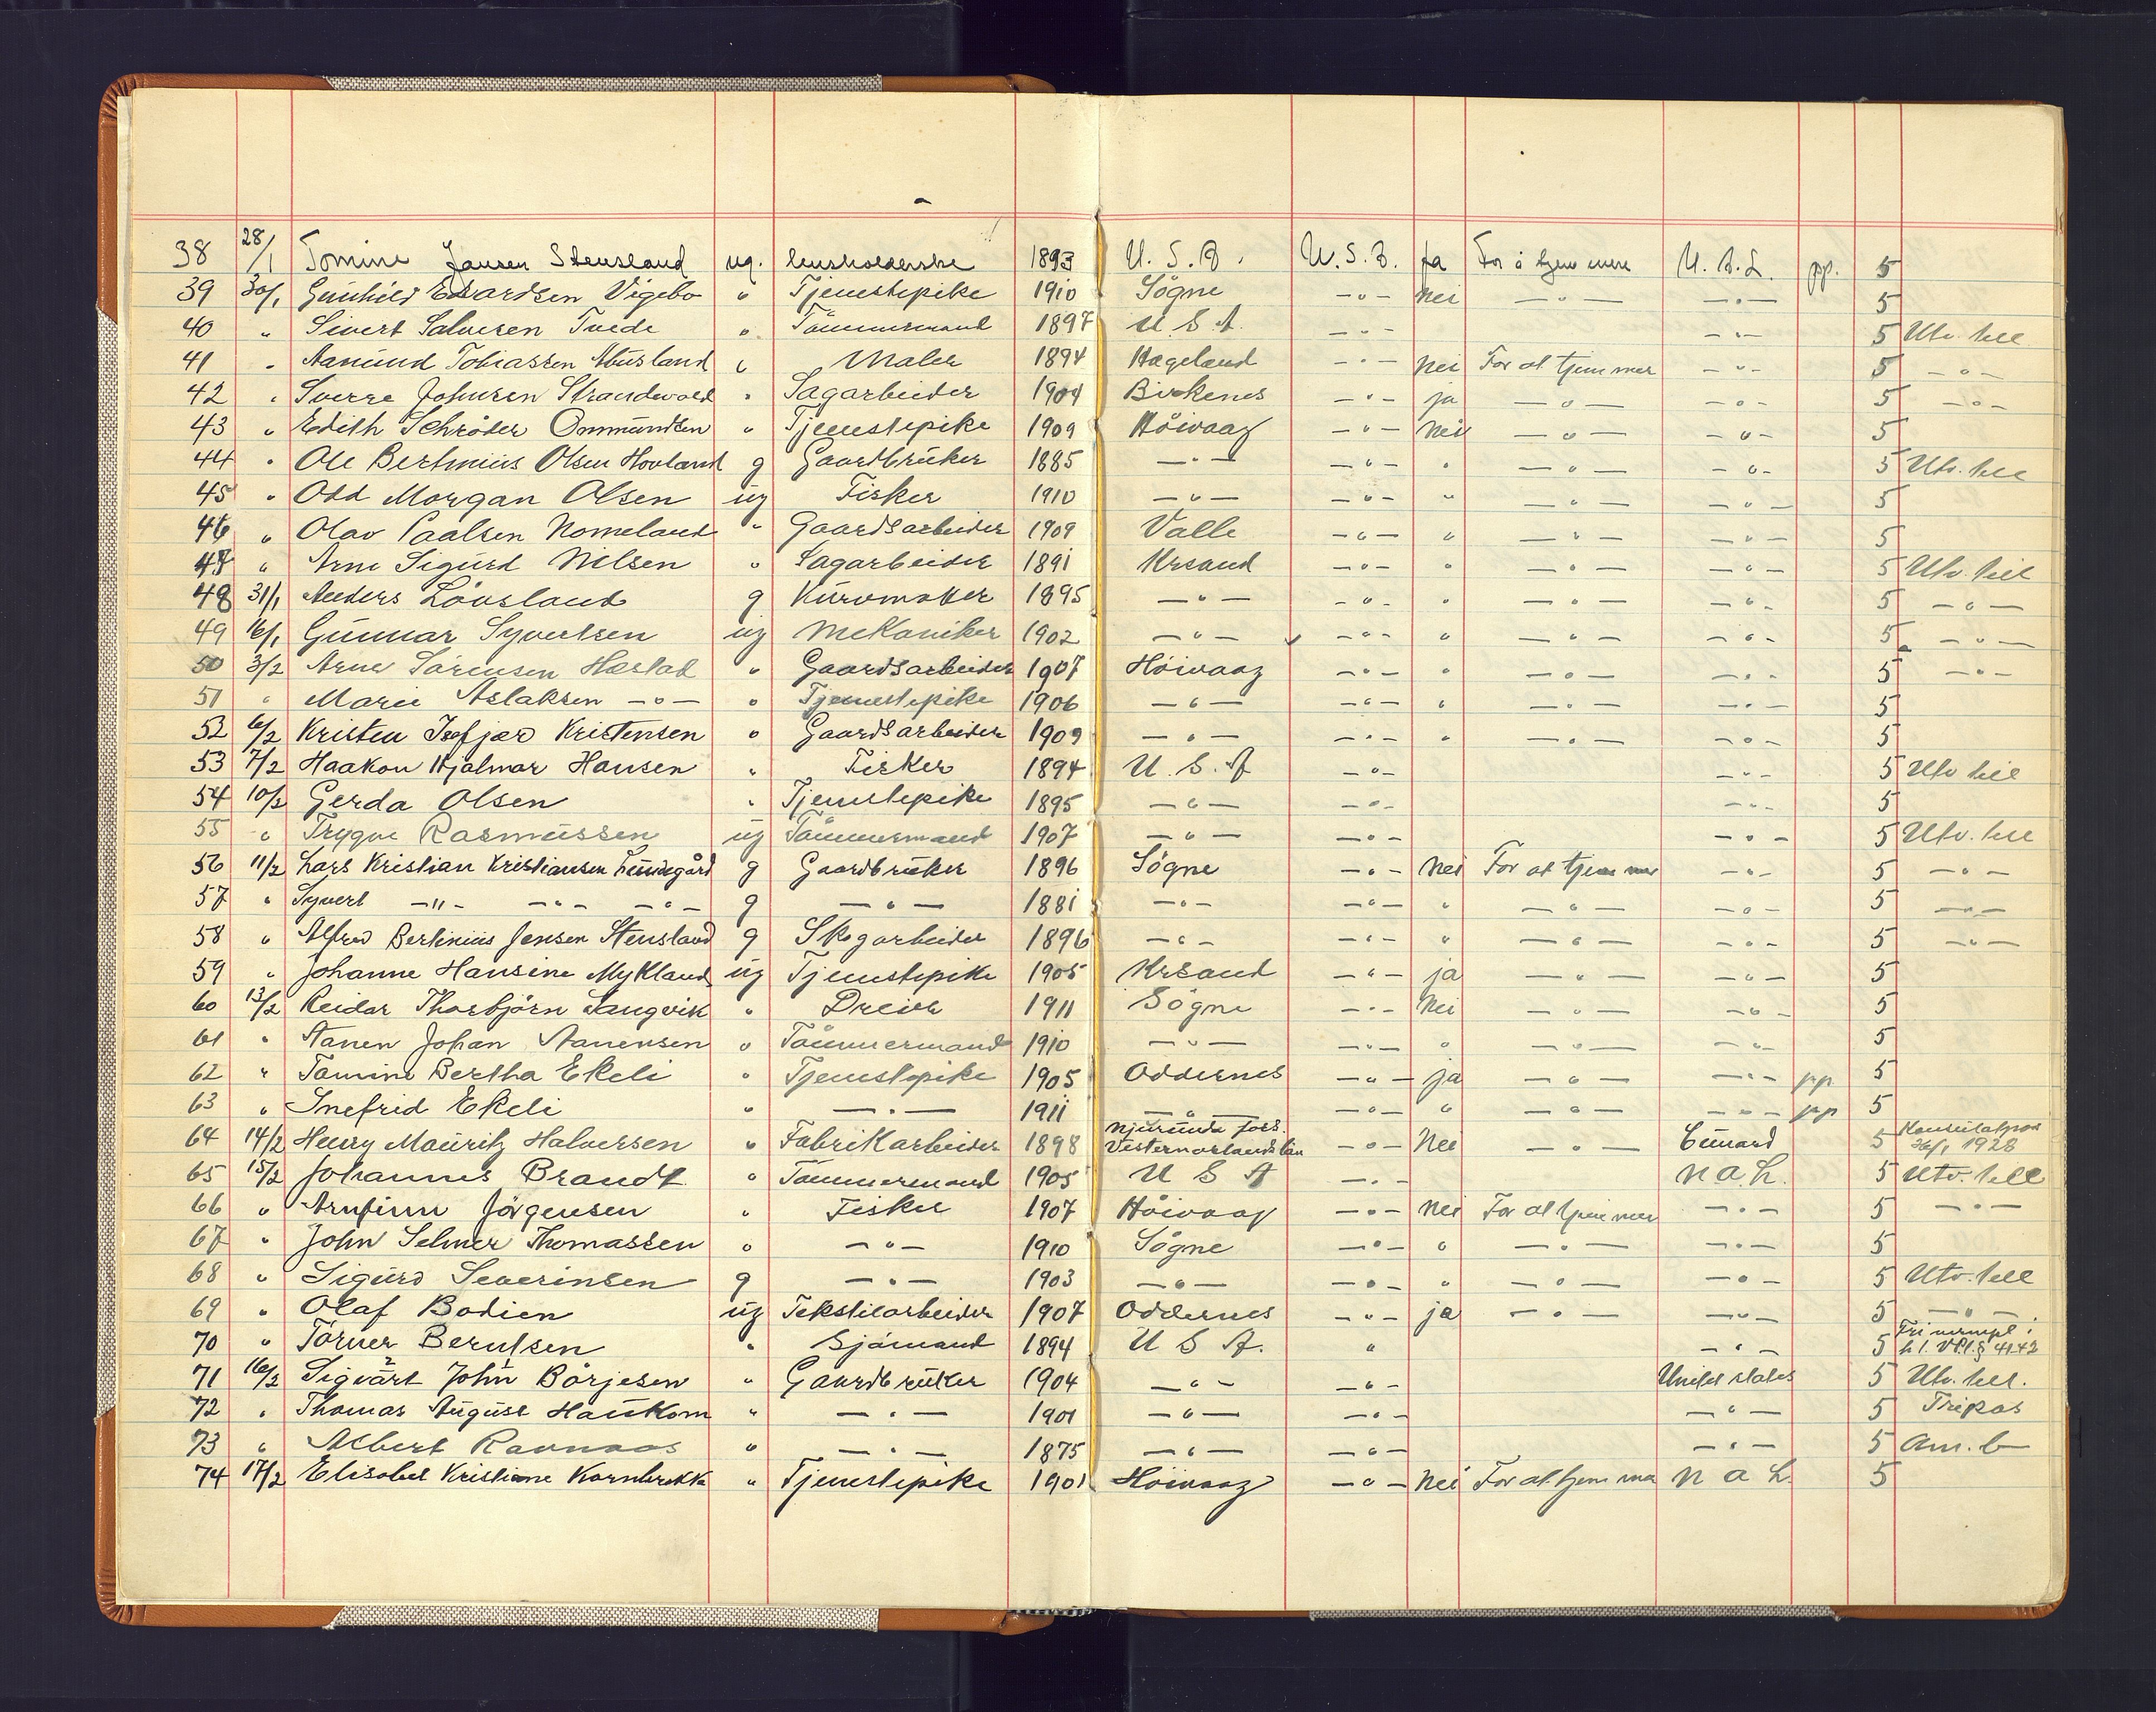 38 28/1 Tomine Jansen Stensland ug. husholderske 1893 U. S. A. U. S. A. ja For å tjene mere N. A. L. pp. 5
39 30/1 Gunhild Edvardsen Vigebo " Tjenestepike 1910 Sögne -"- Nei -"- -"- 5
40 " Sivert Salvesen Tvede " Tömmermand 1897 U S A. -"- -"- 5 Utv. till
41 " Aanund Tobiassen Abusland " Maler 1894 Hageland -"- Nei For at tjene mer -"- 5 -"-
42 " Sverre Johnsen Strandevold " Sagarbeider 1904 Birkenes -"- ja -"- -"- 5 -"-
43 " Edith Schröder Ommundsen " Tjenestepike 1909 Höivaag -"- Nei -"- -"- 5
44 " Ole Bertinius Olsen Hovland g Gaardbruker 1885 -"- -"- " -"- -"- 5 Utv. till
45 " Odd Morgan Olsen ug Fisker 1910 -"- -"- " -"- -"- 5
46 " Olav Paalsen Nomeland " Gaardsarbeider 1909 Valle -"- " -"- -"- 5
47 " Arne Sigurd Nilsen " Sagarbeider 1891 Krsand -"- " -"- -"- 5 Utv. till
48 31/1 Anders Lövsland g Kurvmaker 1895 -"- -"- " -"- -"- 5 -"-
49 16/1 Gunnar Syvertsen ug Mekaniker 1902 -"- -"- " -"- -"- 5 -"-
50 3/2 Arne Sörensen Hæstad " Gaardsarbeider 1907 Höivaag -"- " -"- -"- 5 -"-
51 " Marie Aslaksen -"- " Tjenestepike 1906 -"- -"- " -"- -"- 5
52 6/2 Kristen Kristensen " Gaardsarbeider 1909 -"- -"- " -"- -"- 5
53 7/2 Haakon Hjalmar Hansen " Fisker 1894 U. S. A -"- -"- 5 Utv till
54 10/2 Gerda Olsen " Tjenestepike 1895 -"- -"- -"- 5
55 " Trygve Rasmussen ug Tömmermand 1907 -"- -"- -"- 5 Utv. till
56 11/2 Lars Kristian Kristiansen Lundegård g Gaardbruker 1896 Sögne -"- Nei For at tjene mer -"- 5 -"-
57 " Syvert -"- -"- -"- g -"- 1881 -"- -"- " -"- -"- 5 -"-
58 " Alfred Bertinius Jensen Stensland g Skogarbeider 1896 -"- -"- " -"- -"- 5 -"-
59 " Johanne Hansine Mykland ug Tjenestepike 1905 Krsand -"- ja -"- -"- 5
60 13/2 Reidar Thorbjörn Langvik " Dreier 1911 Sögne -"- Nei -"- -"- 5
61 " Aanen Johan Aanensen " Tömmermand 1910 -"- -"- " -"- -"- 5
62 " Tomine Bertha Ekeli " Tjenestepike 1905 Oddernes -"- ja -"- -"- pp 5
63 " Snefrid Ekeli " -"- 1911 -"- -"- " -"- -"- pp 5
64 14/2 Henry Mauritz Halvorsen " Fabrikarbeider 1898 Njurunda förs. Vesternorlands län -"- Nei -"- Cunard 5 Konsulatpas 26/1 1928
65 15/2 Johannes Brandt " Tömmermand 1905 U S A -"- N A L. 5 Utv. till
66 " Arnfinn Jörgensen " Fisker 1907 Höivaag -"- Nei For at tjene mer -"- 5 -"-
67 " John Selmer Thomassen " -"- 1910 Sögne -"- " -"- -"- 5
68 " Sigurd Severinsen g -"- 1903 -"- -"- " -"- -"- 5 Utv. till
69 " Olaf Bodien ug Tekstilarbeider 1907 Oddernes -"- ja -"- -"- 5 -"-
70 " Törner Berntsen " Sjömand 1894 U S A. " -"- 5 § 41.42
71 16/2 Sigvart John Börjesen " Gaardbruker 1904 -"- -"- United states 5 Utv. till.
72 " Thomas August Haukom " -"- 1901 -"- -"- -"- 5 Tripas
73 " Albert Ravnaas " -"- 1875 -"- -"- -"- 5 Am. b
74 17/2 Elisabet Kristiane Kornbrekke " Tjenestepike 1901 Höivaag -"- Nei For at tjene mer N A L. 5